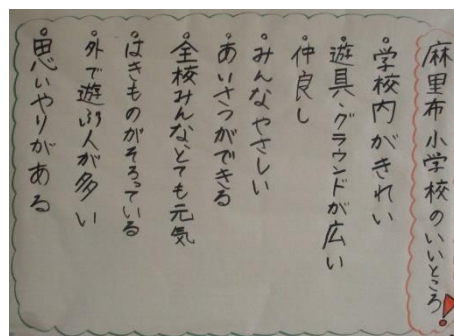 麻里布小学校のいいところ!
・学校内がきれい
・遊具・グラウンドが広い
・仲良し
・みんなやさしい
・あいさつができる
・全校みんな、とても元気
・はきものがそろっている
・外で遊ぶ人が多い
・思いやりがある